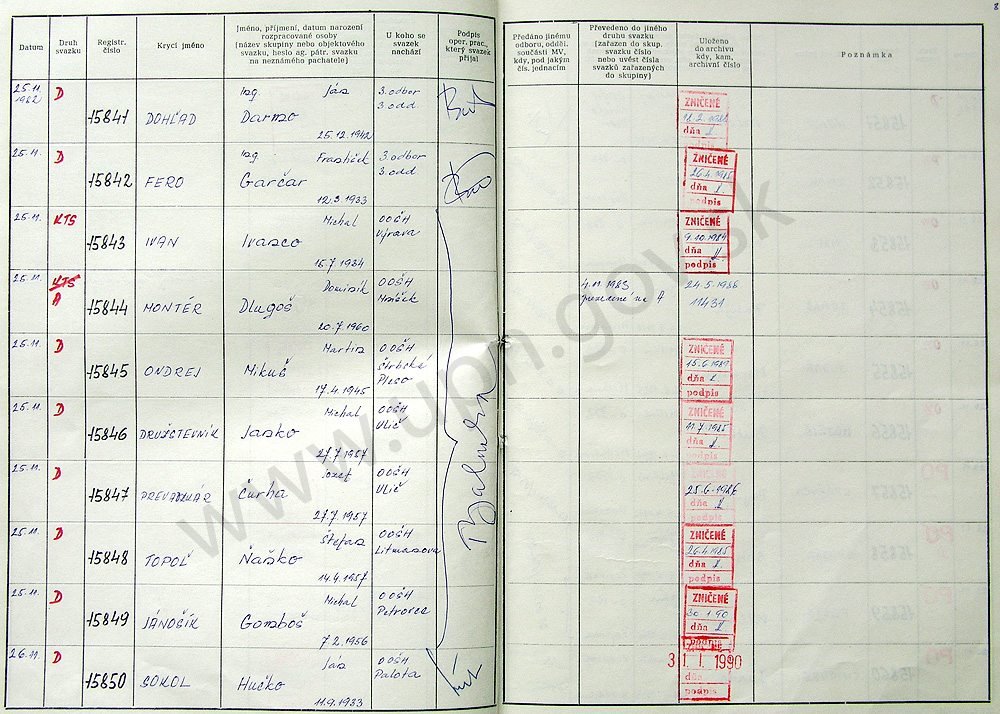 8
Datum
Druh svazku
Registr. číslo
Krycí jméno
Jméno, příjmení, datum narození
rozpracované osoby
(název skupiny nebo objektového
svazku, heslo ag. pátr. svazku
na neznámého pachatele)
U koho se svazek nachází
Podpis
oper. prac.,
který svazek
přijal
Předáno jinému
odboru, odděl.
součásti MV,
kdy, pod jakým
čís. jednacím
Převedeno do jiného
druhu svazku
(zařazen do skup.
svazku číslo
nebo uvést čísla
svazků zařazených
do skupiny)
Uloženo
do archivu
kdy, kam,
archivní číslo
Poznámka
25.11. 1982 D 15841 DOHĽAD Ing. Ján 3. odbor
3. odd.
25.12.1942
ZNIČENÉ
dňa
25.11. D 15842 FERO Ing. František 3. odbor
Garčar 3. odd
12.3.1933
ZNIČENÉ
26.4.1985
dňa
podpis
25.11. KTS 15843 IVAN Michal OOŠH
Ivanco Výrava
15.7.1934
ZNIČENÉ
9.10.1984
dňa
podpis
25.11. KTS A 15844 MONTÉR Dominik OOŠH
Dlugoš
20.7.1960
4.11.1983
prevedené na A
24.5.1986
11431
25.11. D 15845 ONDREJ Martin OOŠH
Mikuš Štrbské
Pleso
17.4.1945
ZNIČENÉ
15.6.1989
dňa
podpis
25.11. D 15846 DRUŽSTEVNÍK Michal OOŠH
Janko Ulič
27.7.1957
ZNIČENÉ
11.7.1985
dňa
podpis
25.11. D 15847 Jozef OOŠH
Čurha Ulič
27.7.1957
25.6.1986
dňa
podpis
25.11. D 15848 TOPOĽ Štefan OOŠH
Ňaško Litmanova
14.4.1957
ZNIČENÉ
26.4.1985
dňa
podpis
25.11. D 15849 JÁNOŠÍK Michal OOŠH
Gomboš Petrovce
7.2.1956
ZNIČENÉ
30 1 90
dňa
podpis
26.11. D 15850 SOKOL Ján OOŠH
Hučko Palota
11.9.1933
31. I. 1990
dňa
podpis
www.upn.gov.sk